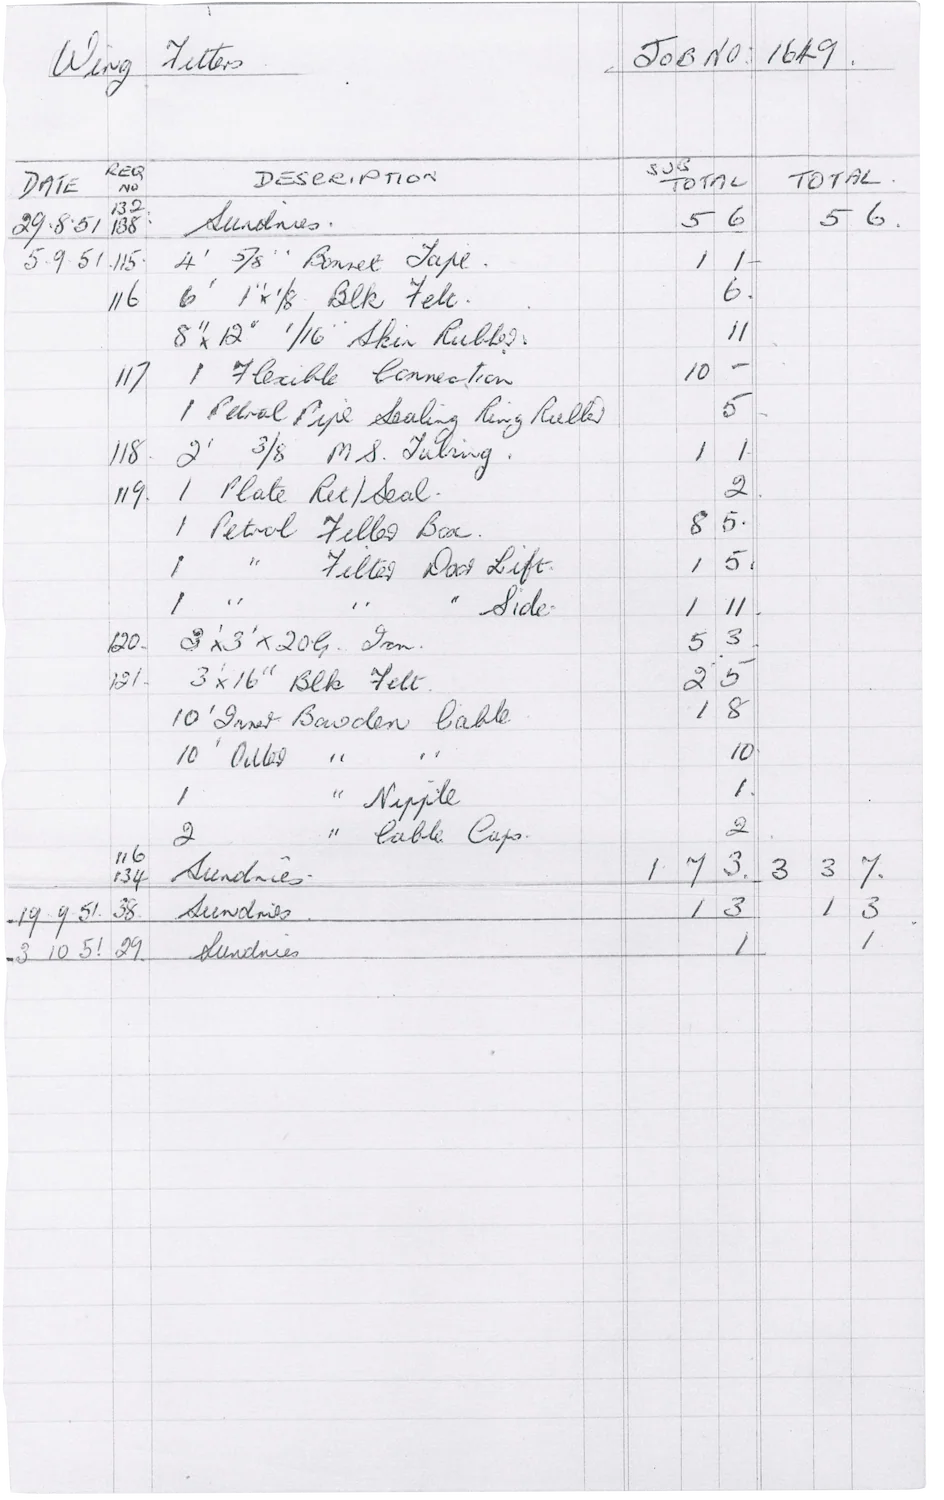 Wing Fitters JOB NO: 1649.
DATE REQ NO DESCRIPTION SUB TOTAL TOTAL.
29.8.51 132 138 Sundries. 5 6 5 6.
5.9.51 115. 4' 5/8" Bonnet Tape. 1 1
116 6' 1"x1/8 Blk Felt. 6.
8"x12" 1/16" Skin Rubber. 11
117 1 Flexible Connection 10 -
1 Petrol Pipe Sealing Ring Rubber 5
118. 2' 3/8 M.S. Tubing. 1 1
119. 1 Plate Ret/Seal. 2.
1 Petrol Filler Box. 8 5.
1 " Filler Door Lift. 1 5.
1 " " " Side. 1 11.
120. 3'x3'x20G. Iron. 5 3.
121. 3'x16" Blk Felt. 2 5
10' Inner Bowden Cable 1 8
10' Outer " " 10
1 " Nipple 1.
2 " Cable Caps. 2
116 134 Sundries. 1 7 3. 3 3 7.
19 9 51. 38. Sundries. 1 3 1 3
3 10 51 29. Sundries 1 1